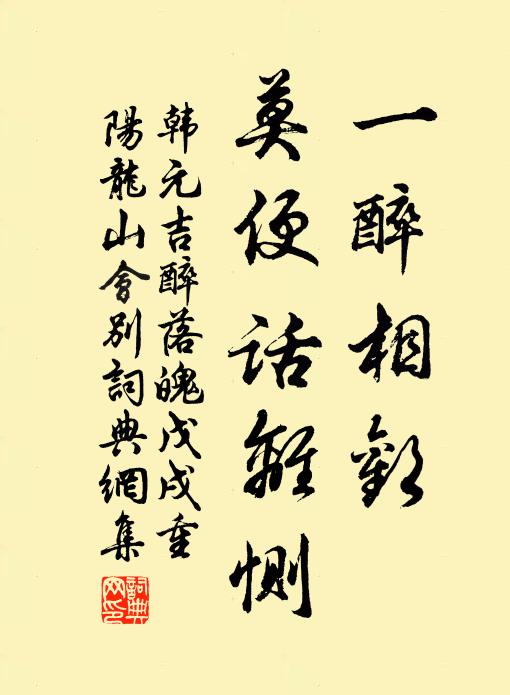 一醉相歡
莫便話離惻
韩元吉醉落魄戊戌重
陽龍山會别詞典網集
詞典
网印